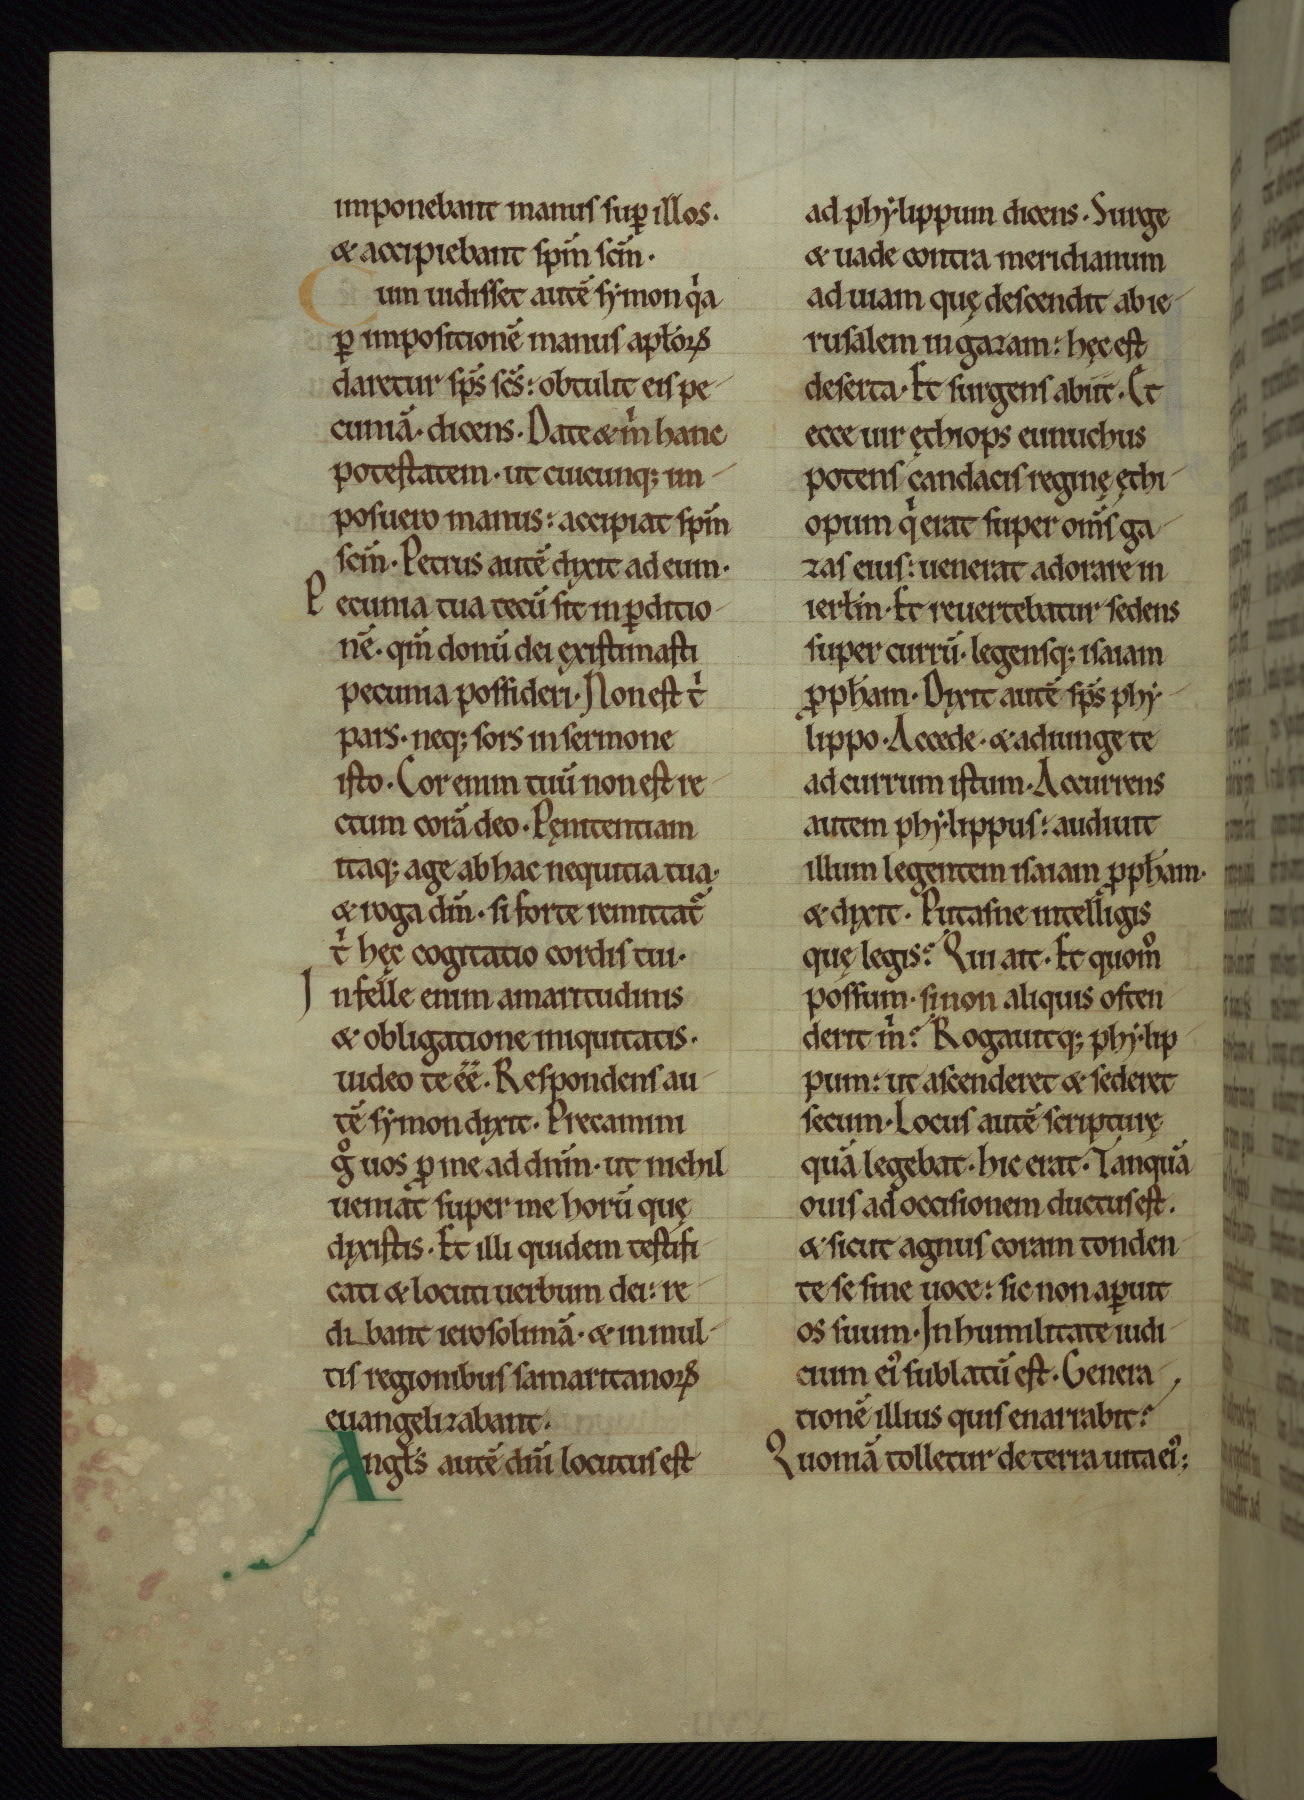 imponebant manus sup̱ illos·
& accipiebant sp̄m sc̄m·
Cum uidisset autē sẏmon qͥa
ꝑ impositionē manus apl̄oꝝ
daretur sp̄s sc̄s: obtulit eis pe-
cuniā· dicens· Date & m̄ hanc
potestatem· ut cuicunq; im-
posuero manus: accipiat sp̄m
sc̄m· Petrus autē dixit ad eum·
Pecunia tua tecū sit in ꝑditio-
nē· qm̄ donū dei existimasti
pecunia possideri· Non est tͥ
pars· neq; sors in sermone
isto· Cor enim tuū non est re-
ctum corā deo· Pęnitentiam
itaq; age ab hac nequitia tua·
& roga dm̄· si forte remittat᷑
tͥ hęc cogitatio cordis tui·
In felle enim amaritudinis
& obligatione iniquitatis·
uideo te ēē· Respondens au-
tē sẏmon dixit· Precamini
gͦ uos ꝑ me ad dnm̄· ut nichil
ueniat super me horū quę
dixistis· Et illi quidem testifi-
cati & locuti uerbum dei: re-
di bant ierosolimā· & in mul-
tis regionibus samaritanoꝝ
euangelizabant·
Angl̄s autē dn̄i locutus est
ad phẏlippum dicens· Surge
& uade contra meridianum
ad uiam quę descendit ab ie-
rusalem in gazam: hęc est
deserta· Et surgens abiit· Et
ecce uir ęthiops eunuchus
potens candacis reginę ęthi-
opum qͥ erat super om̄s ga-
zas eius: uenerat adorare in
ierl̄m· Et reuertebatur sedens
super currū· legensq; isaiam
ꝓph̄am· Dixit autē sp̄s phẏ-
lippo· Accede· & adiunge te
ad currum istum· Accurrens
autem phẏlippus: audiuit
illum legentem isaiam ꝓph̄am·
& dixit· Putasne intelligis
quę legis? Qui ait· Et quomͦ
possum· si non aliquis osten-
derit m̄? Rogauitq; phẏlip-
pum: ut ascenderet & sederet
secum· Locus autē scripturę
quā legebat· hic erat· Tanquā
ouis ad occisionem ductus est·
& sicut agnus coram tonden-
te se sine uoce: sic non aꝑuit
os suum· In humilitate iudi-
cium ei᾽ sublatū est· Genera-
tionē illius quis enarrabit?
Quoniā tolletur de terra uita ei᾽;